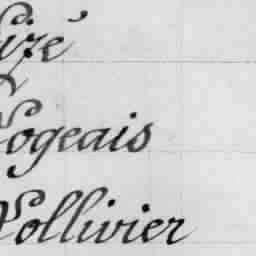 Lizé
Logeais
Lollivier